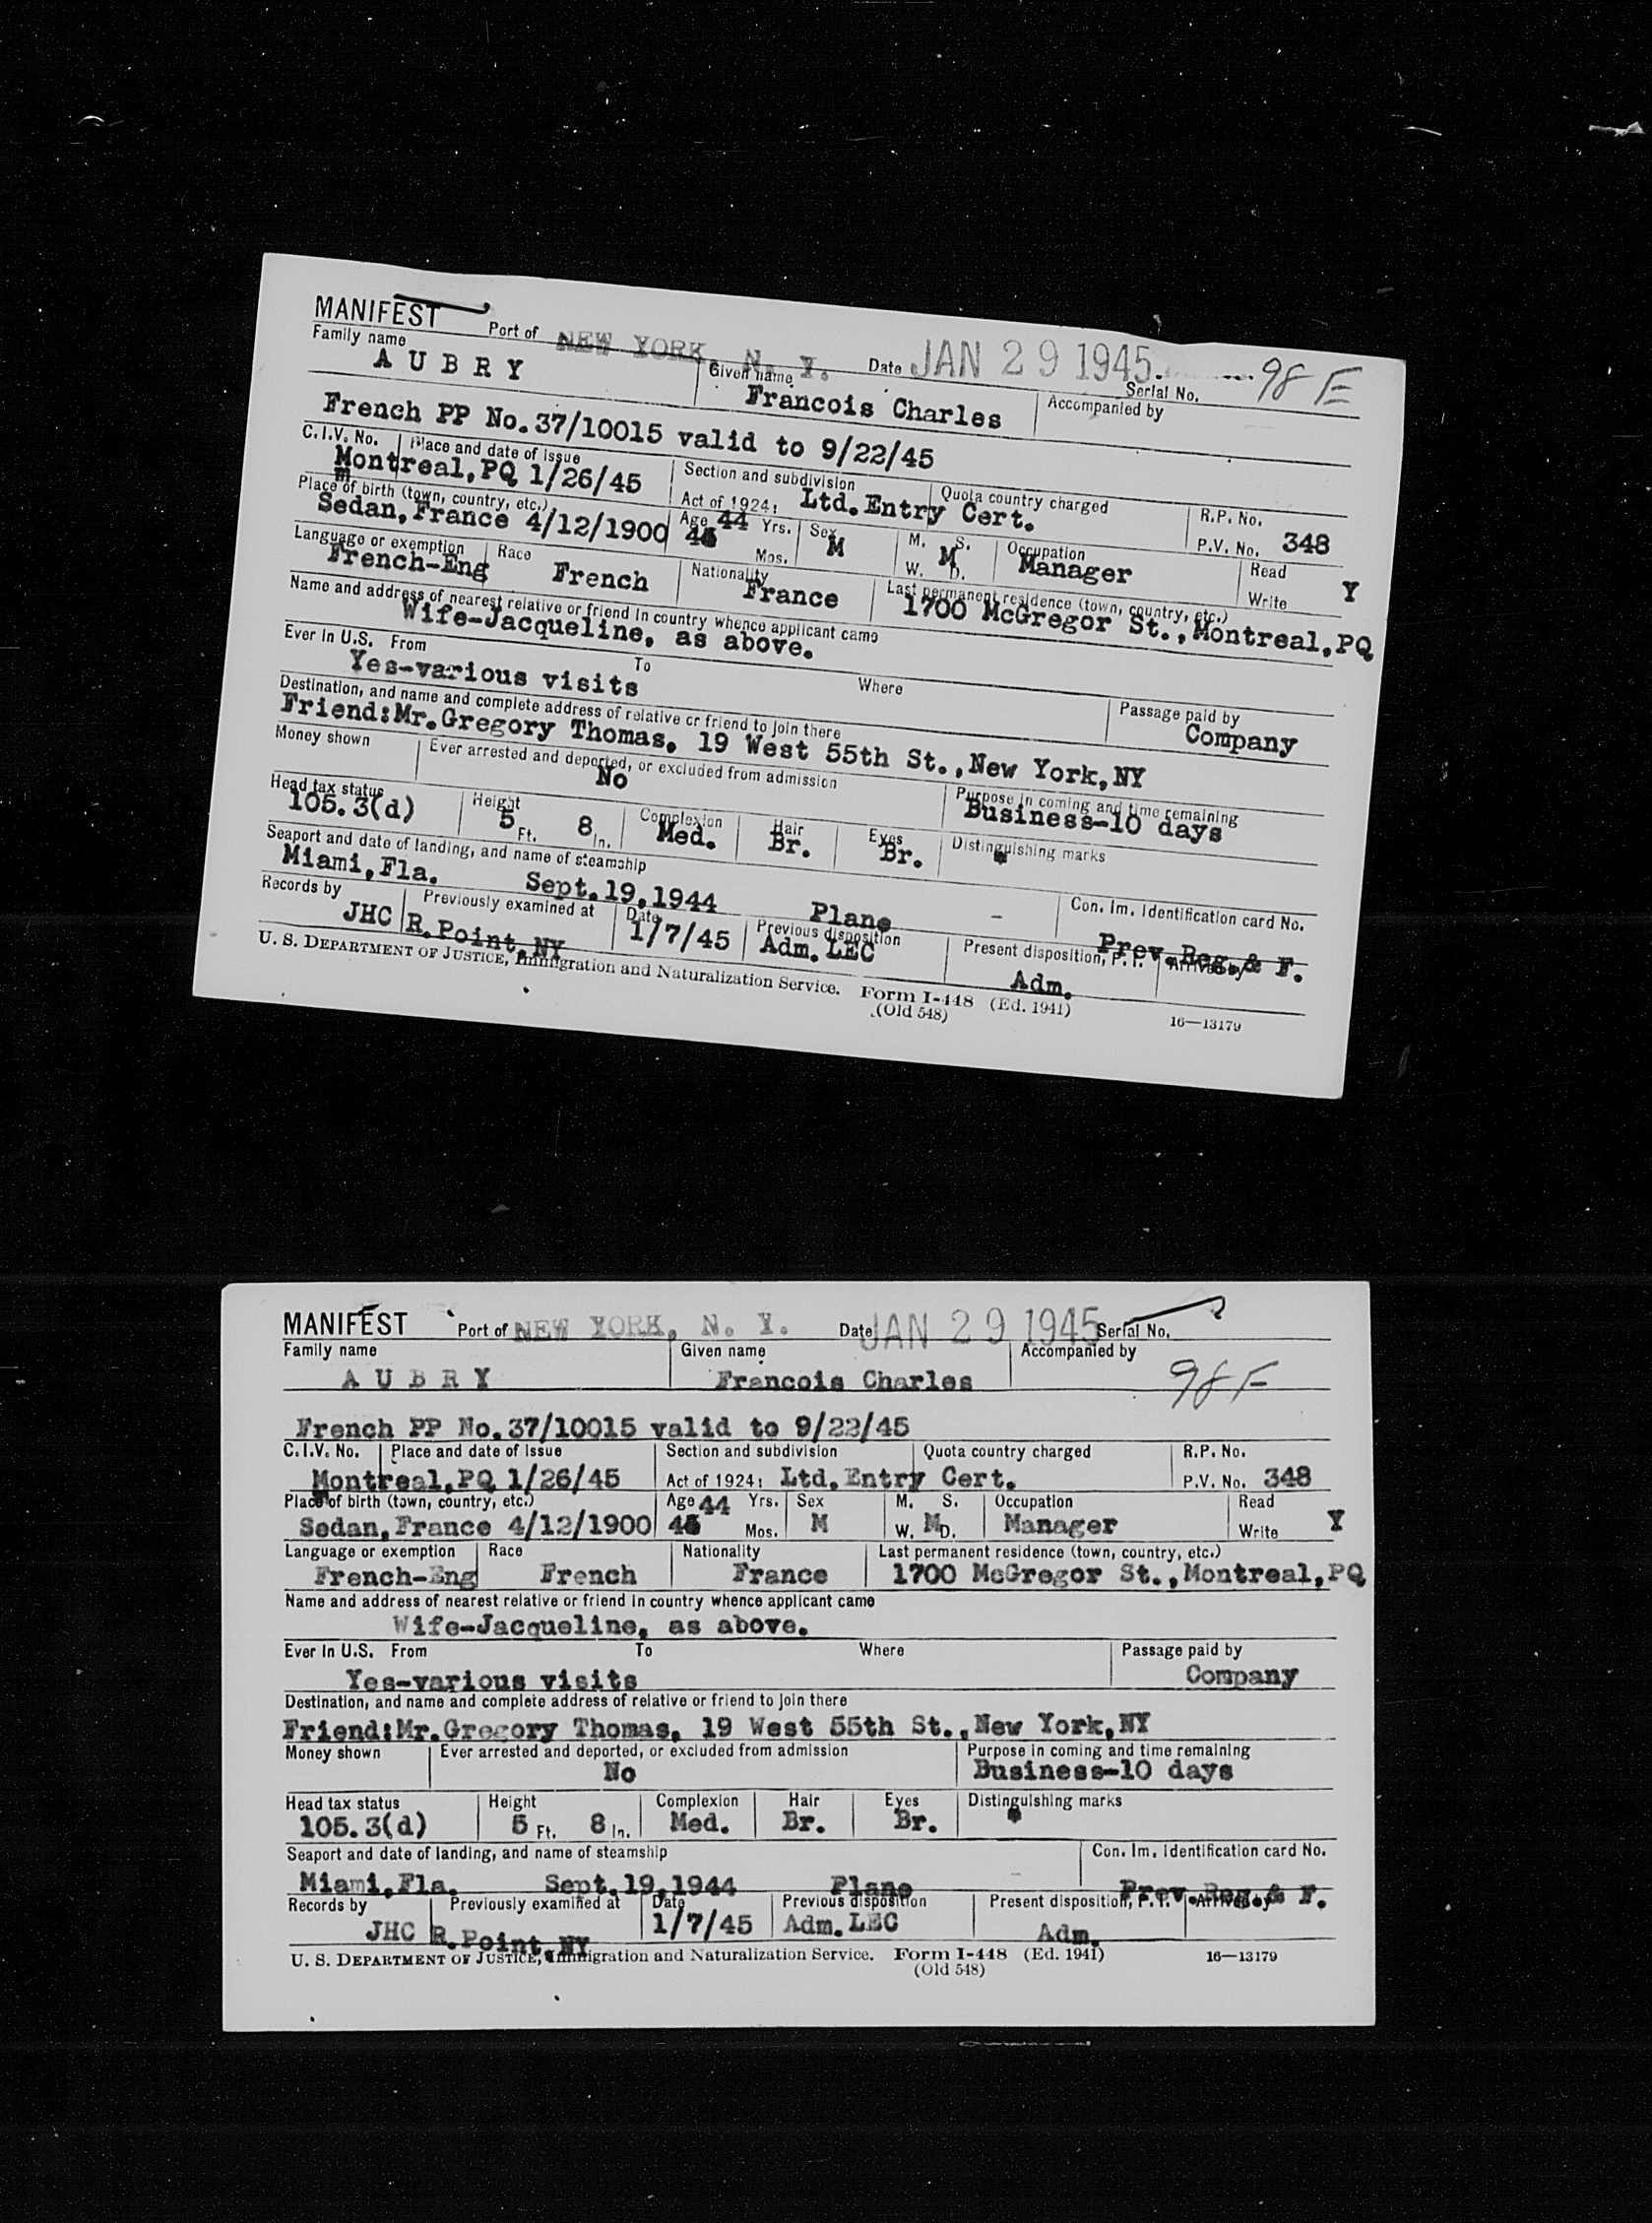 MANIFEST Port of NEW YORK, N. Y. Date JAN 29 1945 Serial No. 98 E
Family name Given name Accompanied by
A U B R Y Francois Charles
French PP No.37/10015 valid to 9/22/45
C.I.V. No. Place and date of issue Section and subdivision Quota country charged R.P. No.
Montreal,PQ 1/26/45 Act of 1924: Ltd.Entry Cert. P.V. No. 348
Place of birth (town, country, etc.) Age 44 Yrs. Sex M. S. Occupation Read
Sedan,France 4/12/1900 Mos. M W. M D. Manager Write Y
Language or exemption Race Nationality Last permanent residence (town, country, etc.)
French-Eng French France 1700 McGregor St.,Montreal,PQ
Name and address of nearest relative or friend in country whence applicant came
Wife-Jacqueline, as above.
Ever in U.S. From To Where Passage paid by
Yes-various visits Company
Destination, and name and complete address of relative or friend to join there
Friend:Mr.Gregory Thomas, 19 West 55th St.,New York,NY
Money shown Ever arrested and deported, or excluded from admission Purpose in coming and time remaining
No Business-10 days
Head tax status Height Complexion Hair Eyes Distinguishing marks
105.3(d) 5 Ft. 8 In. Med. Br. Br.
Seaport and date of landing, and name of steamship Con. Im. Identification card No.
Miami,Fla. Sept.19,1944 Plane - Prev.Reg.& F.
Records by Previously examined at Date Previous disposition Present disposition, P. I. Arrived by
JHC R.Point,NY 1/7/45 Adm.LEC Adm.
U. S. DEPARTMENT OF JUSTICE, Immigration and Naturalization Service. Form I-448 (Ed. 1941) 16—13179
(Old 548)
MANIFEST Port of NEW YORK, N. Y. Date JAN 29 1945 Serial No.
Family name Given name Accompanied by
A U B R Y Francois Charles 98 F
French PP No.37/10015 valid to 9/22/45
C.I.V. No. Place and date of issue Section and subdivision Quota country charged R.P. No.
Montreal,PQ 1/26/45 Act of 1924: Ltd.Entry Cert. P.V. No. 348
Place of birth (town, country, etc.) Age 44 Yrs. Sex M. S. Occupation Read
Sedan,France 4/12/1900 Mos. M W. M D. Manager Write Y
Language or exemption Race Nationality Last permanent residence (town, country, etc.)
French-Eng French France 1700 McGregor St.,Montreal,PQ
Name and address of nearest relative or friend in country whence applicant came
Wife-Jacqueline, as above.
Ever in U.S. From To Where Passage paid by
Yes-various visits Company
Destination, and name and complete address of relative or friend to join there
Friend:Mr.Gregory Thomas, 19 West 55th St.,New York,NY
Money shown Ever arrested and deported, or excluded from admission Purpose in coming and time remaining
No Business-10 days
Head tax status Height Complexion Hair Eyes Distinguishing marks
105.3(d) 5 Ft. 8 In. Med. Br. Br.
Seaport and date of landing, and name of steamship Con. Im. Identification card No.
Miami,Fla. Sept.19,1944 Plane - Prev.Reg.& F.
Records by Previously examined at Date Previous disposition Present disposition, P. I. Arrived by
JHC R.Point,NY 1/7/45 Adm.LEC Adm.
U. S. DEPARTMENT OF JUSTICE, Immigration and Naturalization Service. Form I-448 (Ed. 1941) 16—13179
(Old 548)